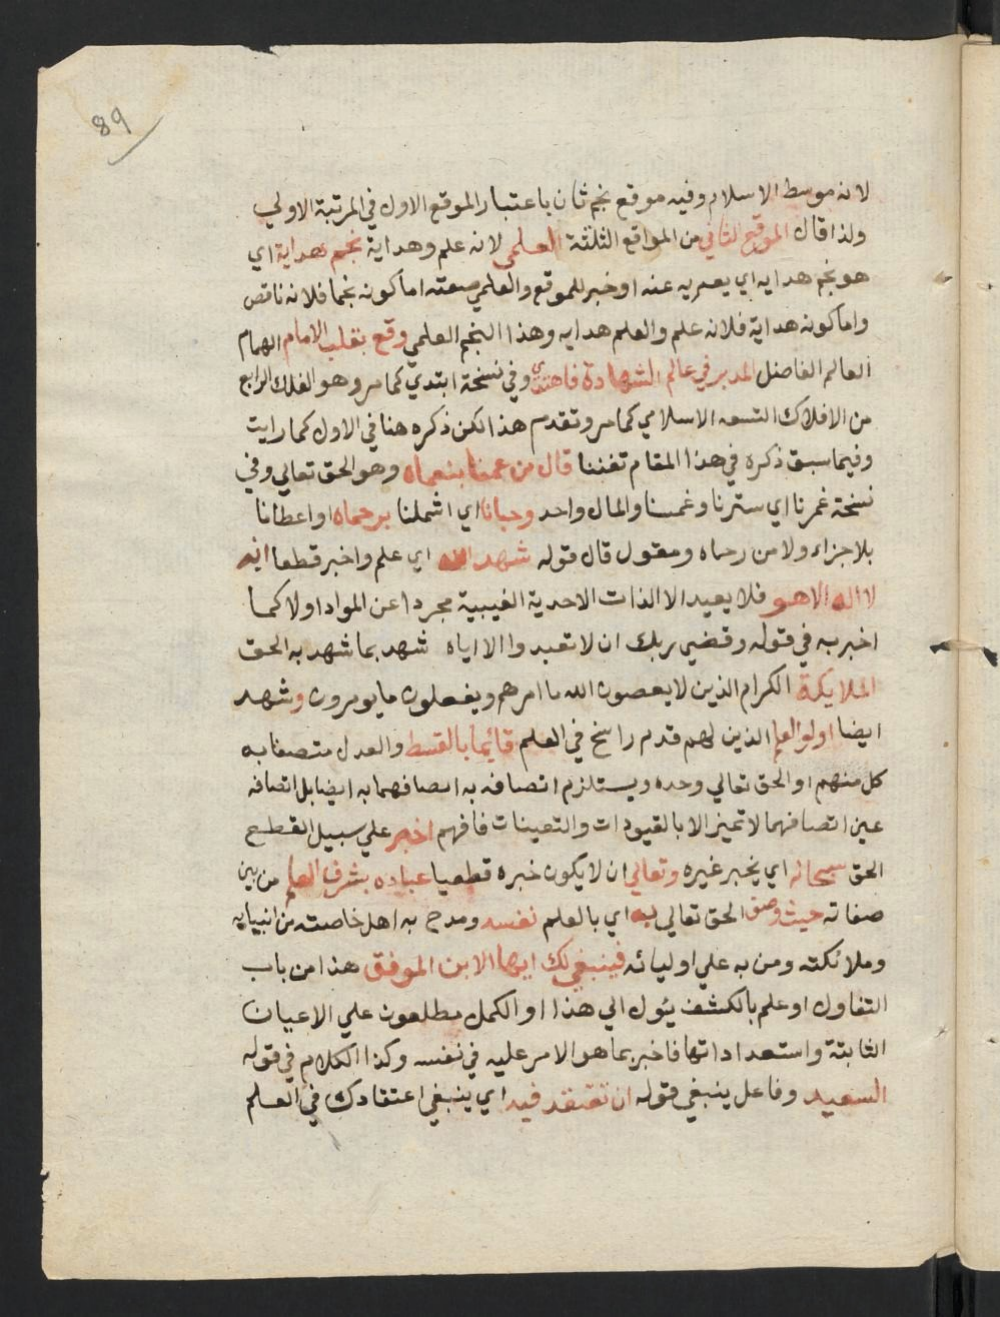 89
لانه موسط الاسلام وفيه موقع نجم ثان باعتبار الموقع الاول في المرتبة الاولي
ولذا قال الموقع الثاني من المواقع الثلثة العلمي لانه علم وهداية نجم هداية اي
هو نجم هدايه اي يصدر به عنه او خبر للموقع والعلمي صفته اما كونه نجما فلانه ناقص
واما كونه هداية فلانه علم والعلم هدايه وهذا النجم العلمي وقع بقلب الامام الهمام
العالم الفاضل المدبر في عالم الشهادة فاهتدي وفي نسخة ابتدي كما مر وهو الفلك الرابع
من الافلاك التسعه الاسلامي كما مر وتقدم هذا لكن ذكره هنا في الاول كما رايت
وفيما سبق ذكره في هذا المقام تفننا قال من عمنا بنعماه وهو الحق تعالي وفي
نسخة غمرنا اي سترنا وغمسنا والمال واحد وحبانا اي اشملنا برحماه او اعطانا
بلا جزاء ولا من رحماه ومقول قال قوله شهد الله اي علم واخبر قطعا انه
لا اله الا هو فلا يعبد الا الذات الاحدية الغيبية مجردا عن المواد اولا كما
اخبر به في قوله وقضي ربك ان لا تعبدوا الا اياه شهد بما شهد به الحق
الملايكة الكرام الذين لا يعصون الله ما امرهم ويفعلون ما يومرون وشهد
ايضا اولوا العلم الذين لهم قدم راسخ في العلم قائيما بالقسط والعدل متصفا به
كل منهم او الحق تعالي وحده ويستلزم اتصافه به اتصافهما به ايضا بل اتصافه
عين اتصافهما لا تميز الا بالقيودات والتعينات فافهم اخبر علي سبيل القطع
الحق سبحانه اي يخبر غيره وتعالي ان لا يكون خبره قطعيا عباده بشرف العلم من بين
صفاته حيث وصف الحق تعالي به اي بالعلم نفسه ومدح به اهل خاصته من انبيايه
وملائكته ومن به علي اوليائه فينبغي لك ايها الابن الموفق هذا من باب
التفاول او علم بالكشف يئول الي هذا او الكمل مطلعون علي الاعيان
الثابتة واستعداداتها فاخبر بما هو الامر عليه في نفسه وكذا الكلام في قوله
السعيد وفاعل ينبغي قوله ان تعتقد فيه اي ينبغي اعتقادك في العلم